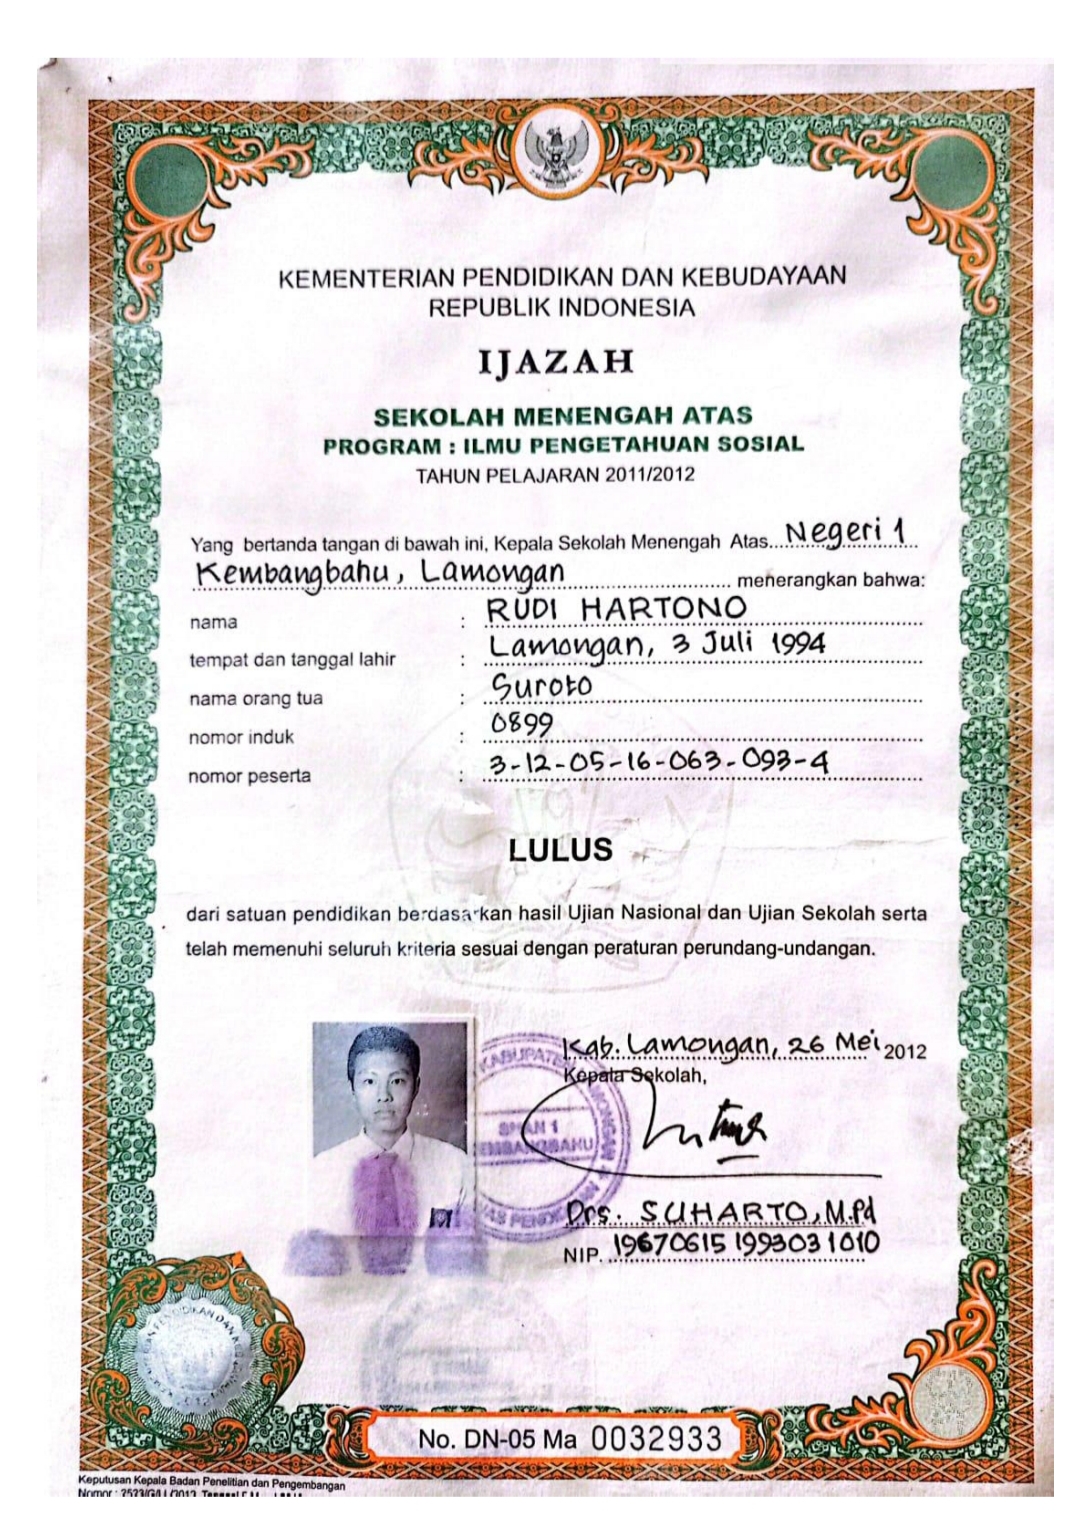 KEMENTERIAN PENDIDIKAN DAN KEBUDAYAAN
REPUBLIK INDONESIA
IJAZAH
SEKOLAH MENENGAH ATAS
PROGRAM : ILMU PENGETAHUAN SOSIAL
TAHUN PELAJARAN 2011/2012
Yang bertanda tangan di bawah ini, Kepala Sekolah Menengah Atas Negeri 1
Kembangbahu, Lamongan menerangkan bahwa:
nama : RUDI HARTONO
tempat dan tanggal lahir : Lamongan, 3 Juli 1994
nama orang tua : Suroto
nomor induk : 0899
nomor peserta : 3-12-05-16-063-093-4
LULUS
dari satuan pendidikan berdasarkan hasil Ujian Nasional dan Ujian Sekolah serta
telah memenuhi seluruh kriteria sesuai dengan peraturan perundang-undangan.
Kab. Lamongan, 26 Mei 2012
Kepala Sekolah,
SMAN 1
KEMBANGBAHU
Drs. SUHARTO, M.Pd
NIP. 19670615 199303 1 010
No. DN-05 Ma 0032933
Keputusan Kepala Badan Penelitian dan Pengembangan
Nomor :